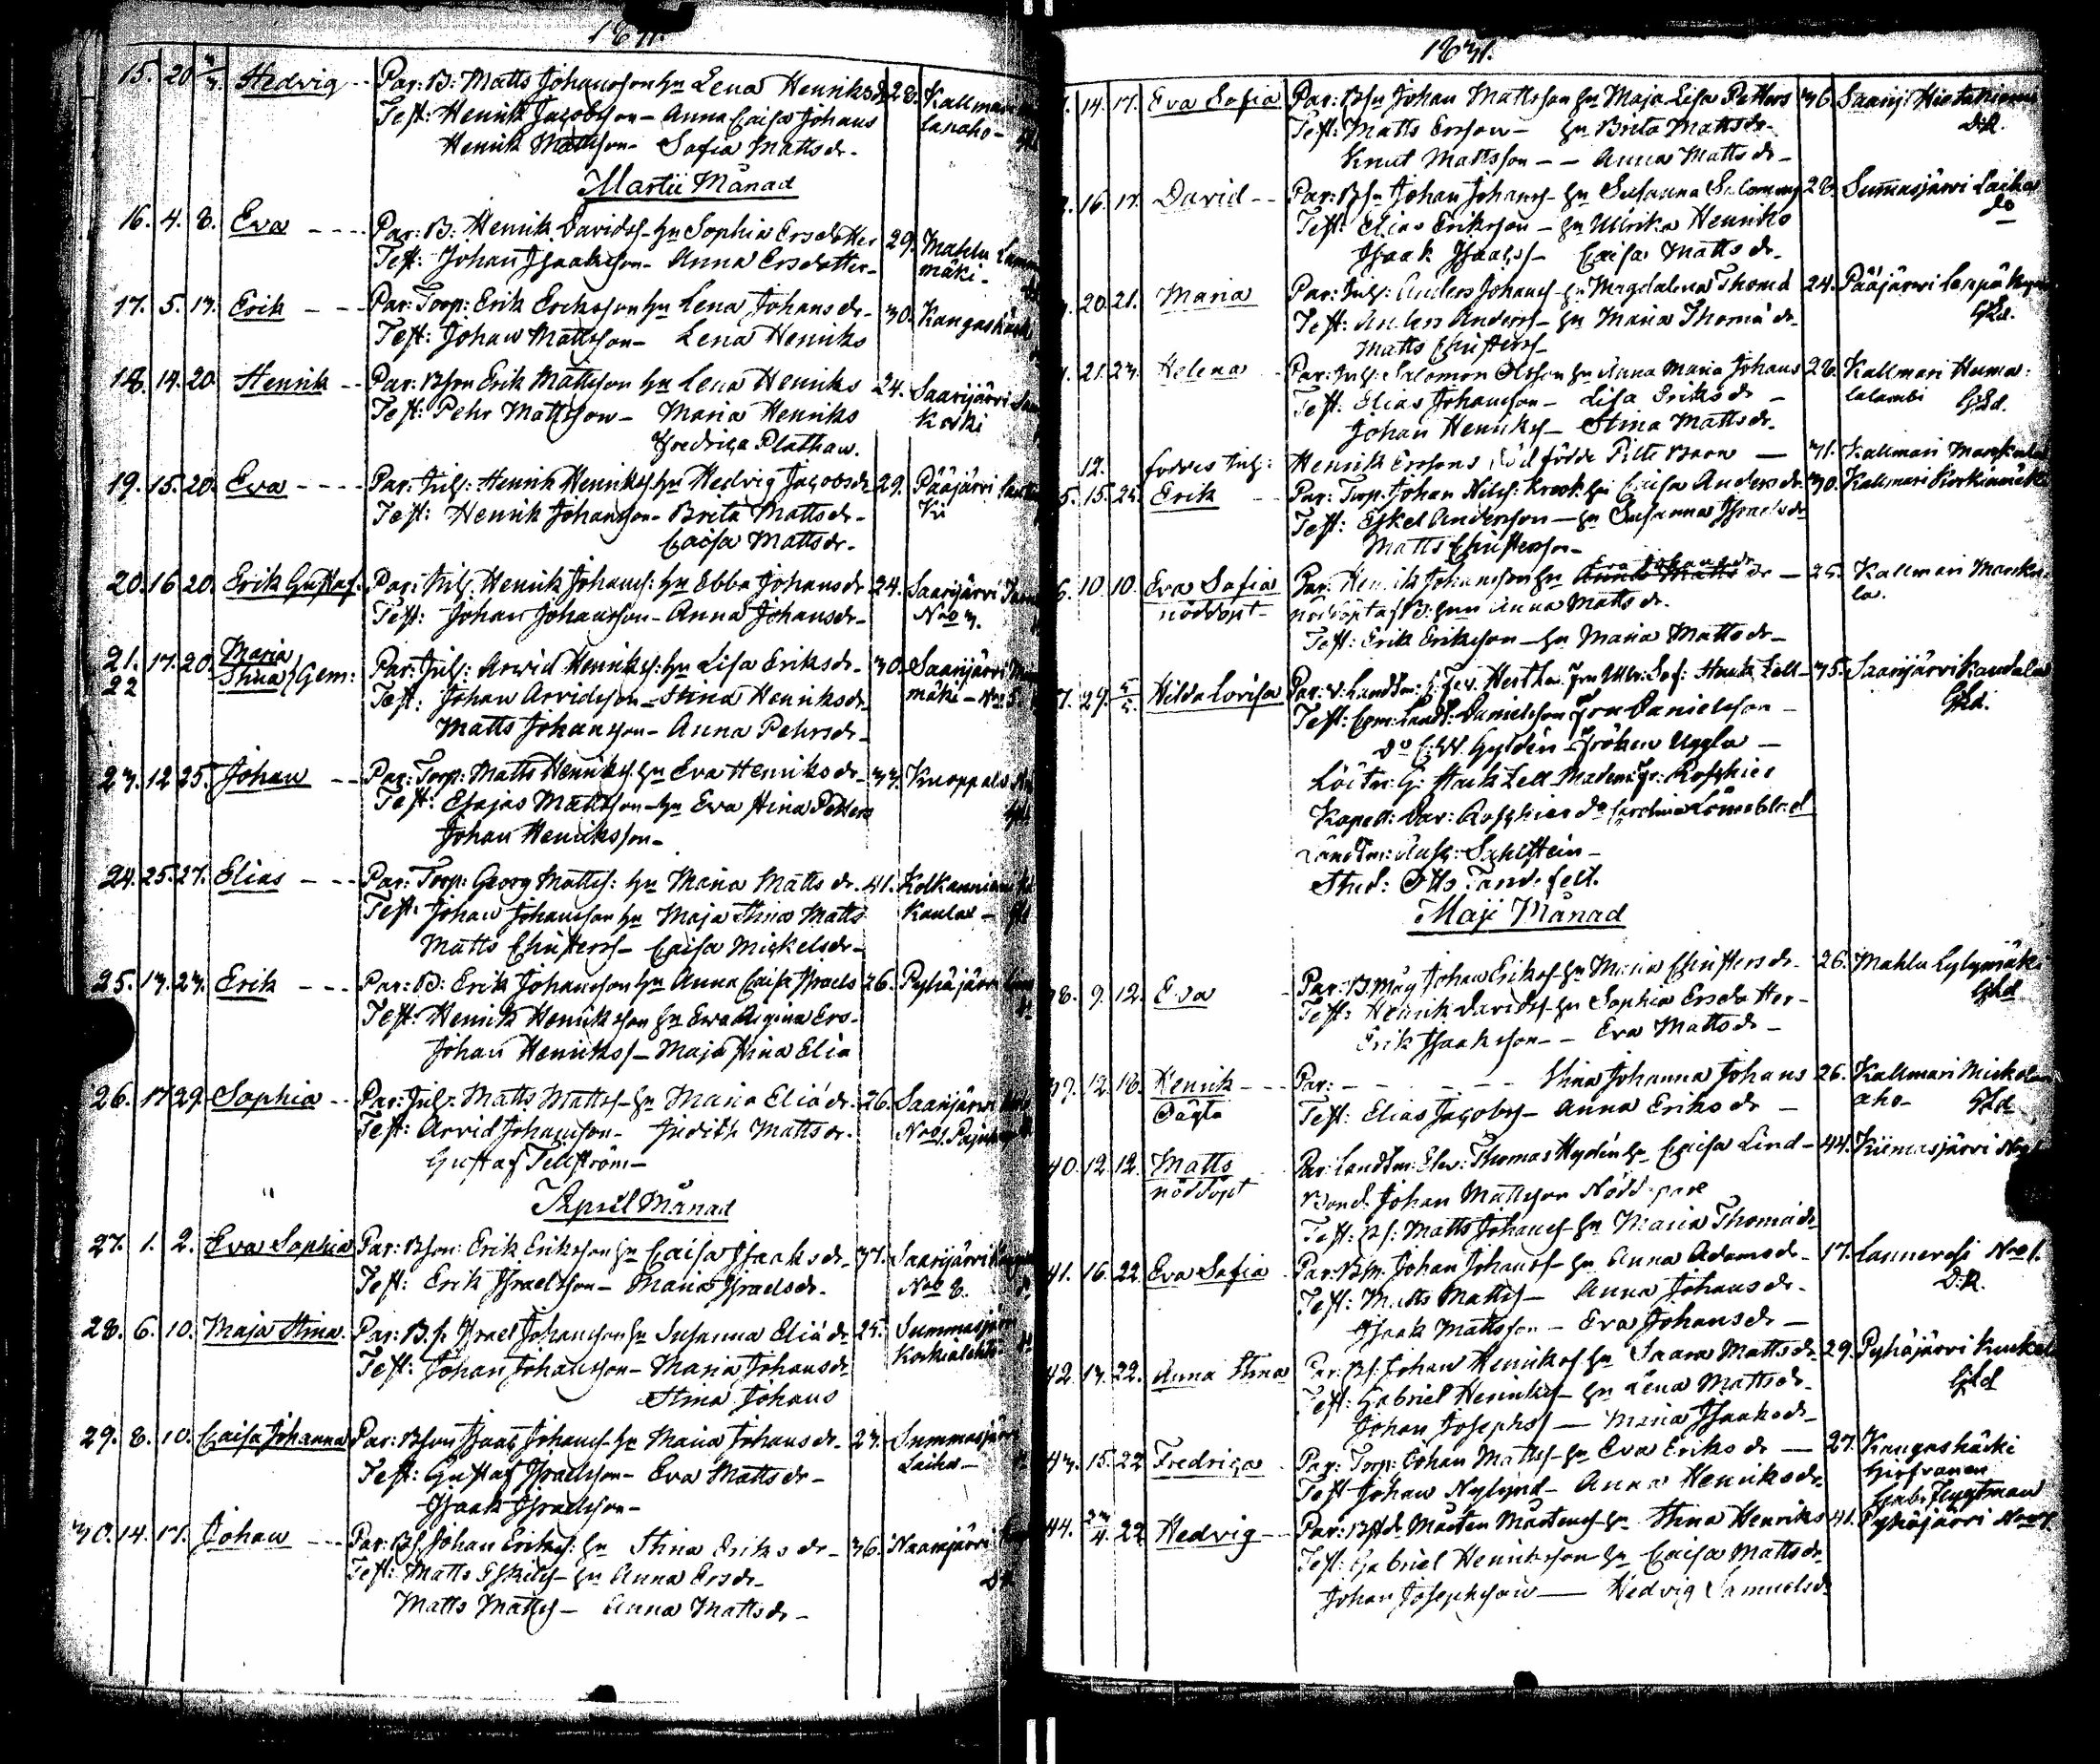 15. 20 Hedvig - Par: B: Matts Johansson hu Lena Henriksd. 28. Kallmari
Test: Henrik Jacobsson - Anna Caisa Johans lanaho -
Henrik Mattsson - Sofia Mattsdr.
Martii Månad
16. 4. 8. Eva - - - Par: B: Henrik Davidss - hu Sophia Ersdotter 29. Mahlu
Test: Johan Isaaksson - Anna Ersdotter - mäki -
17. 5. 13. Erik - - Par: Torp: Erik Eriksson hu Lena Johansdr - 30. Kangashäcki
Test: Johan Mattsson - Lena Henriks
18. 14. 20. Henrik - Par: Bson Erik Mattsson hu Lena Henriks 24. Saarijärvi
Test: Pehr Mattsson - Maria Henriks Koski
Fredrica Plathan.
19. 15. 20. Eva - - - Par: Inh: Henrik Henrikss. hu Hedvig Jacobsdr 29. Pääjärvi
Test: Henrik Johansson - Brita Mattsdr - ki
Caisa Mattsdr -
20. 16 20. Erik Gustaf. Par: Inh. Henrik Johanss: hu Ebba Johansdr 24. Saarijärvi
Test: Johan Johansson - Anna Johansdr - No 3.
21. 17. 20. Maria
22 Stina } Gem: Par: Inh: Arvid Henrikss: hu Lisa Eriksdr - 30. Saarijärvi
Test: Johan Arvidsson - Stina Henriksdr mäki - No 5.
Matts Johansson - Anna Pehrsdr -
23. 12 25. Johan - - Par: Torp: Matts Henrikss. hu Eva Henriksdr - 33. Knoppala
Test: Esajas Mattsson - hu Eva Stina Petters
Johan Henriksson -
24. 25. 27. Elias - - Par: Torp: Georg Mattss: hu Maria Mattsdr. 41. Kolkanniemi
Test: Johan Johansson hu Maja Stina Matts Kaula -
Matts Christerss - Caisa Mickelsdr -
25. 13. 23. Erik - - Par: B: Erik Johansson hu Anna Caisa Israels 26. Pyhäjärvi
Test: Henrik Henriksson hu Eva Regina Ers -
Johan Henrikss - Maja Stina Elia
26. 17 29. Sophia - Par: Inh: Matts Mattss - hu Maria Eliädr. 26. Saarijärvi
Test: Arvid Johansson - Judith Mattsdr. No 1.
Gustaf Tellström -
April Månad
27. 1. 2. Eva Sophia Par: Bson: Erik Eriksson hu Caisa Isaaksdr - 37. Saarijärvi
Test: Erik Israelsson - Maria Israelsdr. No 8.
28. 6. 10. Maja Stina. Par: B. s. Israel Johansson hu Susanna Eliädr 25. Summasjärvi
Test: Johan Johansson - Maria Johansdr Korkialehto
Stina Johans
29. 8. 10. Caisa Johanna Par: Bson Isaac Johanss - hu Maria Johansdr - 23. Summasjärvi
Test: Gustaf Israelsson - Eva Mattsdr - Laika -
Isaak Israelsson -
30. 14. 17. Johan - - Par: Bs. Johan Erikss: hu Stina Eriksdr - 36. Naarajärvi
Test: Matts Eskelss - hu Anna Ersdr -
Matts Mattss - Anna Mattsdr -
1831.
14. 17. Eva Sofia Par: Bsn Johan Mattsson hu Maja Lisa Petters 36. Saarij: Hietaniemi
Test: Matts Ersson - hu Brita Mattsdr - D.R.
Knut Mattsson - - Anna Mattsdr -
16. 17. David - - Par: Bsn Johan Johanss - hu Susanna Salomons 28. Summasjärvi Laika
Test: Elias Eriksson - hu Ulrika Henriks do
Isaak Isaakss - Caisa Mattsdr -
20. 21. Maria Par: Inh: Anders Johanss - hu Magdalena Thomä 24. Pääjärvi
Test: Anders Anderss - hu Maria Thomädr - Gld.
Matts Christerss -
21. 23. Helena - Par: Inh: Salomon Olsson hu Anna Maria Johans 28. Kallmari Huma:
Test: Elias Johansson - Lisa Eriksdr - lalambi Gld.
Johan Henrikss - Stina Mattsdr -
12. Henrik Erssons död födde Pilte Barn - 31. Kallmari
5. 15. 24. Erik - Par: Torp: Johan Nilss: Krook hu Caisa Andersdr 30. Kallmari
Test: Eskel Andersson - hu Susanna Israelsdr
Matts Christersson -
6. 10. 10. Eva Sofia Par: Henrik Johansson hu Eva Johansdr - 25. Kallmari
nöddöpt - nöddöpt af B: hun Anna Mattsdr. la.
Test: Erik Eriksson - hu Maria Mattsdr -
7. 29. 5/5 Hilda Lovisa Par: v: Landtm: Fru Ulr: Sof: Stackzell - 35. Saarijärvi Kandala
Test: Com: Landt: Danielsson Fru Danielsson - Gld.
Do C: W. Gyldén - Fröken Uggla -
Löitn: G: Stackzell Madem: Fr: Roschier
Kapell: Dav: Roschier do
Landtm: Ausc: Sahlstein -
Stud: Otto Tandefelt.
Maji Månad
38. 9. 12. Eva - Par: B Måg Johan Erikss - hu Maria Christersdr - 26. Mahlu Lylymäki
Test: Henrik Davidss - hu Sophia Ersdotter - Gld
Erik Isaaksson - - Eva Mattsdr -
39. 12. 18. Henrik - - Par: - - - - Stina Johanna Johans 26. Kallmari Mickelin
Oägta Test: Elias Jacobss - Anna Eriksdr - aho - Gld
40. 12 12. Matts Par: Landtm: Elev: Thomas Hydén hu Caisa Lind - 44. Kiimasjärvi
nöddöpt Bond. Johan Mattsson Nöddöpare
Test: Bs: Matts Johanss hu Maria Thomädr
41. 16. 22. Eva Sofia - Par: Bsn. Johan Johanss - hu Anna Adamsdr - 17. Lannevesi No 1.
Test: Matts Mattss - Anna Johansdr - D.R.
Isaak Mattsson - Eva Johansdr -
42. 13. 22. Anna Stina Par: Bs. Johan Henrikss hu Saara Mattsdr - 29. Pyhäjärvi
Test: Gabriel Henrikss - hu Lena Mattsdr - Gld
Johan Josephss - Maria Isaaksdr -
43. 15. 22 Fredrica - Par: Torp: Johan Mattss - hu Eva Eriksdr - 27. Kangashäcki
Test Johan Nylund - Anna Henriksdr.
44. 23/4. 22 Hedvig - - Par: Mårten Mårtenss - hu Stina Henriks 41. Pyhäjärvi
Test: Gabriel Henriksson hu Caisa Mattsdr
Johan Josephsson - Hedvig Samuelsdr